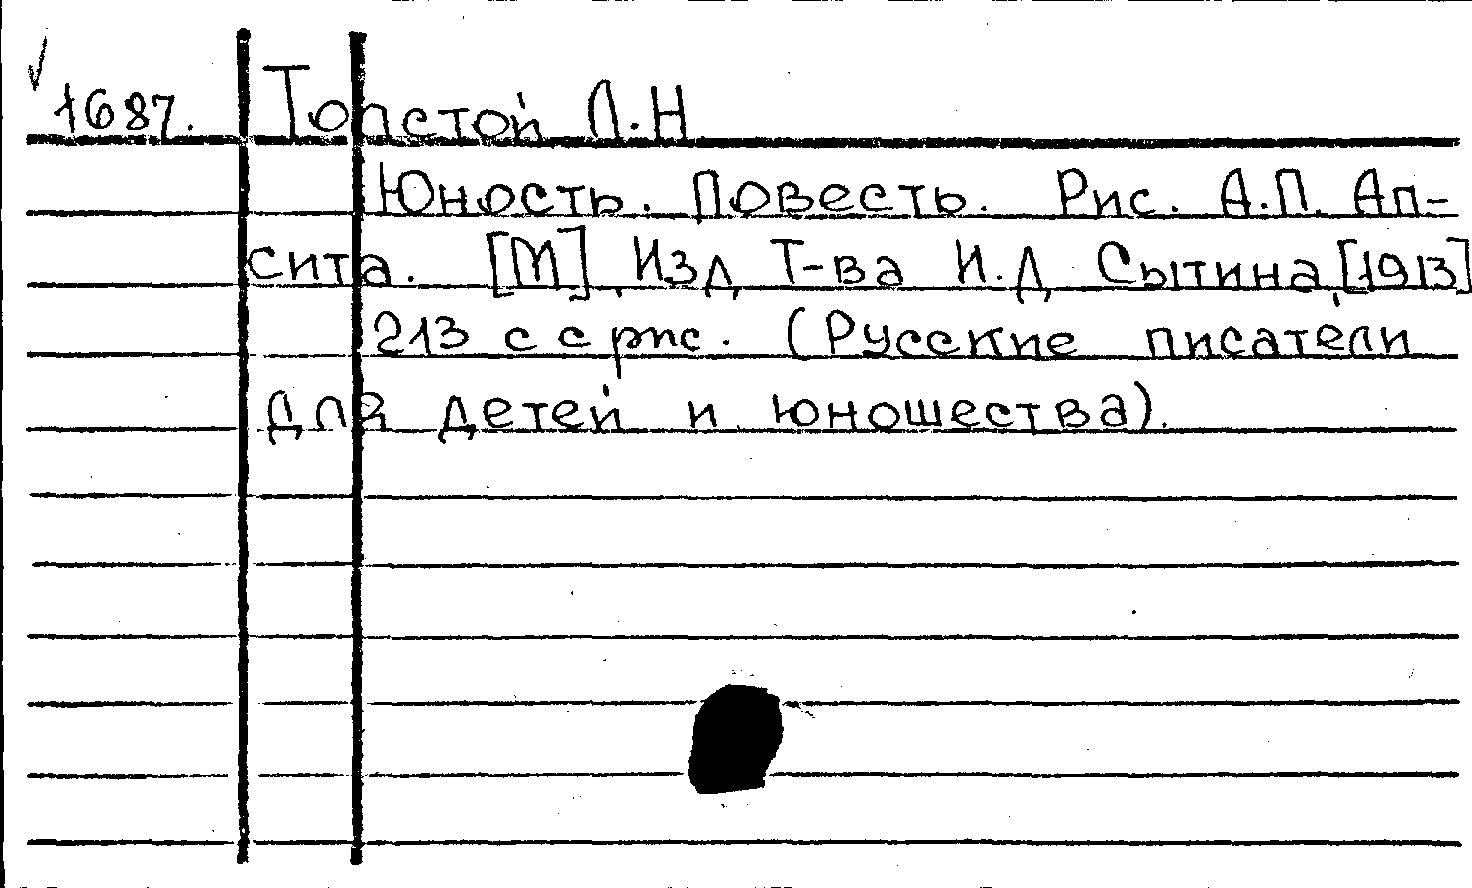 1687. Толстой Л.Н
Юность. Повесть. Рис. А.П. Ап-
сита. [М], Изд, Т-ва И.Д, Сытина, [1913]
213 с с рис. (Русские писатели
для детей и юношества).